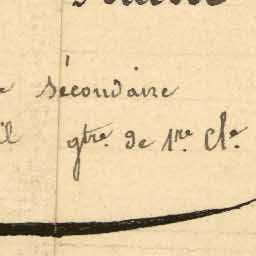 sécondaire
gtre. de 1re. Cle.